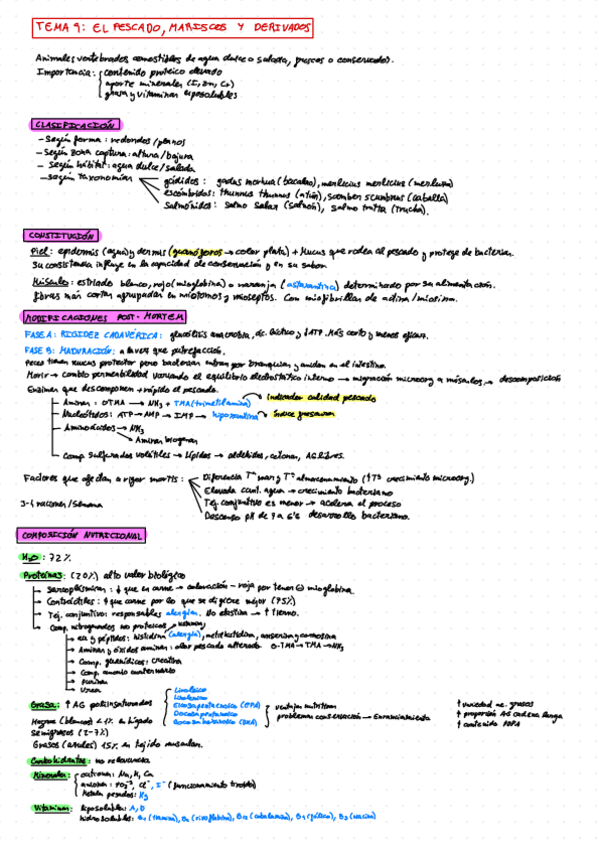 TEMA 9: EL PESCADO, MARISCOS Y DERIVADOS
Animales vertebrados comestibles de agua dulce o salada, frescos o conservados.
Importancia: contenido proteico elevado
aporte minerales (I, Zn, Ca)
grasa y vitaminas liposolubles
CLASIFICACIÓN
- Según forma: redondos/planos
- Según zona captura: altura/bajura
- Según hábitat: agua dulce/salada
- según taxonomía
gádidos: gadus morhua (bacalao), merlucius merlucius (merluza)
escómbridos: thunnus thunnus (atún), scomber scumbrus (caballa)
Salmónidos: salmo salar (salmón), salmo trutta (trucha).
CONSTITUCIÓN
Piel: epidermis (agua) y dermis (guanóforos → color plata) + Mucus que rodea al pescado y protege de bacterias.
Su consistencia influye en la capacidad de conservación y en su sabor
Músculo: estriado blanco, rojo (mioglobina) o naranja (astaxantina) determinado por su alimentación.
fibras más cortas agrupadas en miotomos y mioseptos. Con miofibrillas de actina/miosina.
MODIFICACIONES POST-MORTEM
FASE A: RIGIDEZ CADAVÉRICA: glucólisis anaerobia, ác. láctico y ↓ATP. Más corto y menos eficaz.
FASE B: MADURACIÓN: a la vez que putrefacción.
Peces tienen mucus protector pero bacterias entran por branquias y anidan en el intestino.
Morir → cambio permeabilidad variando el equilibrio electrostático interno → migración microorg a músculos → descomposición
Enzimas que descomponen + rápido el pescado.
Aminas: OTMA → NH3 + TMA (trimetilamina) → Indicador calidad pescado
Nucleótidos: ATP → AMP → IMP → hipoxantina → Índice frescura
Aminoácidos → NH3
Aminas biogenas
Comp. sulfurados volátiles → Lípidos → aldehídos, cetonas, AG libres.
Factores que afectan a rigor mortis:
Diferencia Tª mar y Tª almacenamiento (↑Tª crecimiento microorg.)
Elevada cant. agua → crecimiento bacteriano
Tej. conjuntivo es menor → acelera el proceso
Descenso pH de 7 a 6'6 desarrollo bacteriano.
3-4 raciones/semana
COMPOSICIÓN NUTRICIONAL
H2O: 72%
Proteínas: (20%) alto valor biológico
Sarcoplásmicas: ↓ que en carne → coloración - roja por tener ⊖ mioglobina.
Contráctiles: ↑ que carne por lo que se digiere mejor (75%)
Tej. conjuntivo: responsables alergias. No elastina → ↑ tierno.
Comp. nitrogenados no proteicos
aa y péptidos: histidina (alergia), metilhistidina, anserina y carnosina
Aminas y óxidos aminas: olor pescado alterado O-TMA → TMA → NH3
Comp. guanidicos: creatina
Comp. amonio cuaternario
purinas
Urea
Grasa: ↑ AG poliinsaturados
Linoleico
Linolénico
Eicosapentaenoico (EPA)
Docosapentaenoico
Docosahexaenoico (DHA)
ventajas nutritivas
problemas conservación → Enranciamiento
↑ variedad ac. grasos
↑ proporción AG cadena larga
↑ contenido PUFA
Magros (blancos) <1% en hígado
Semigrasos (2-7%)
Grasos (azules) 15% en tejido muscular.
Carbohidratos: no relevancia.
Minerales: cationes: Na, K, Ca
aniones: PO4-3, Cl-, I- (funcionamiento tiroides)
Metales pesados: Hg
Vitaminas: liposolubles: A, D
hidrosolubles: B1 (tiamina), B2 (riboflavina), B12 (cobalamina), B9 (fólico), B3 (niacina)